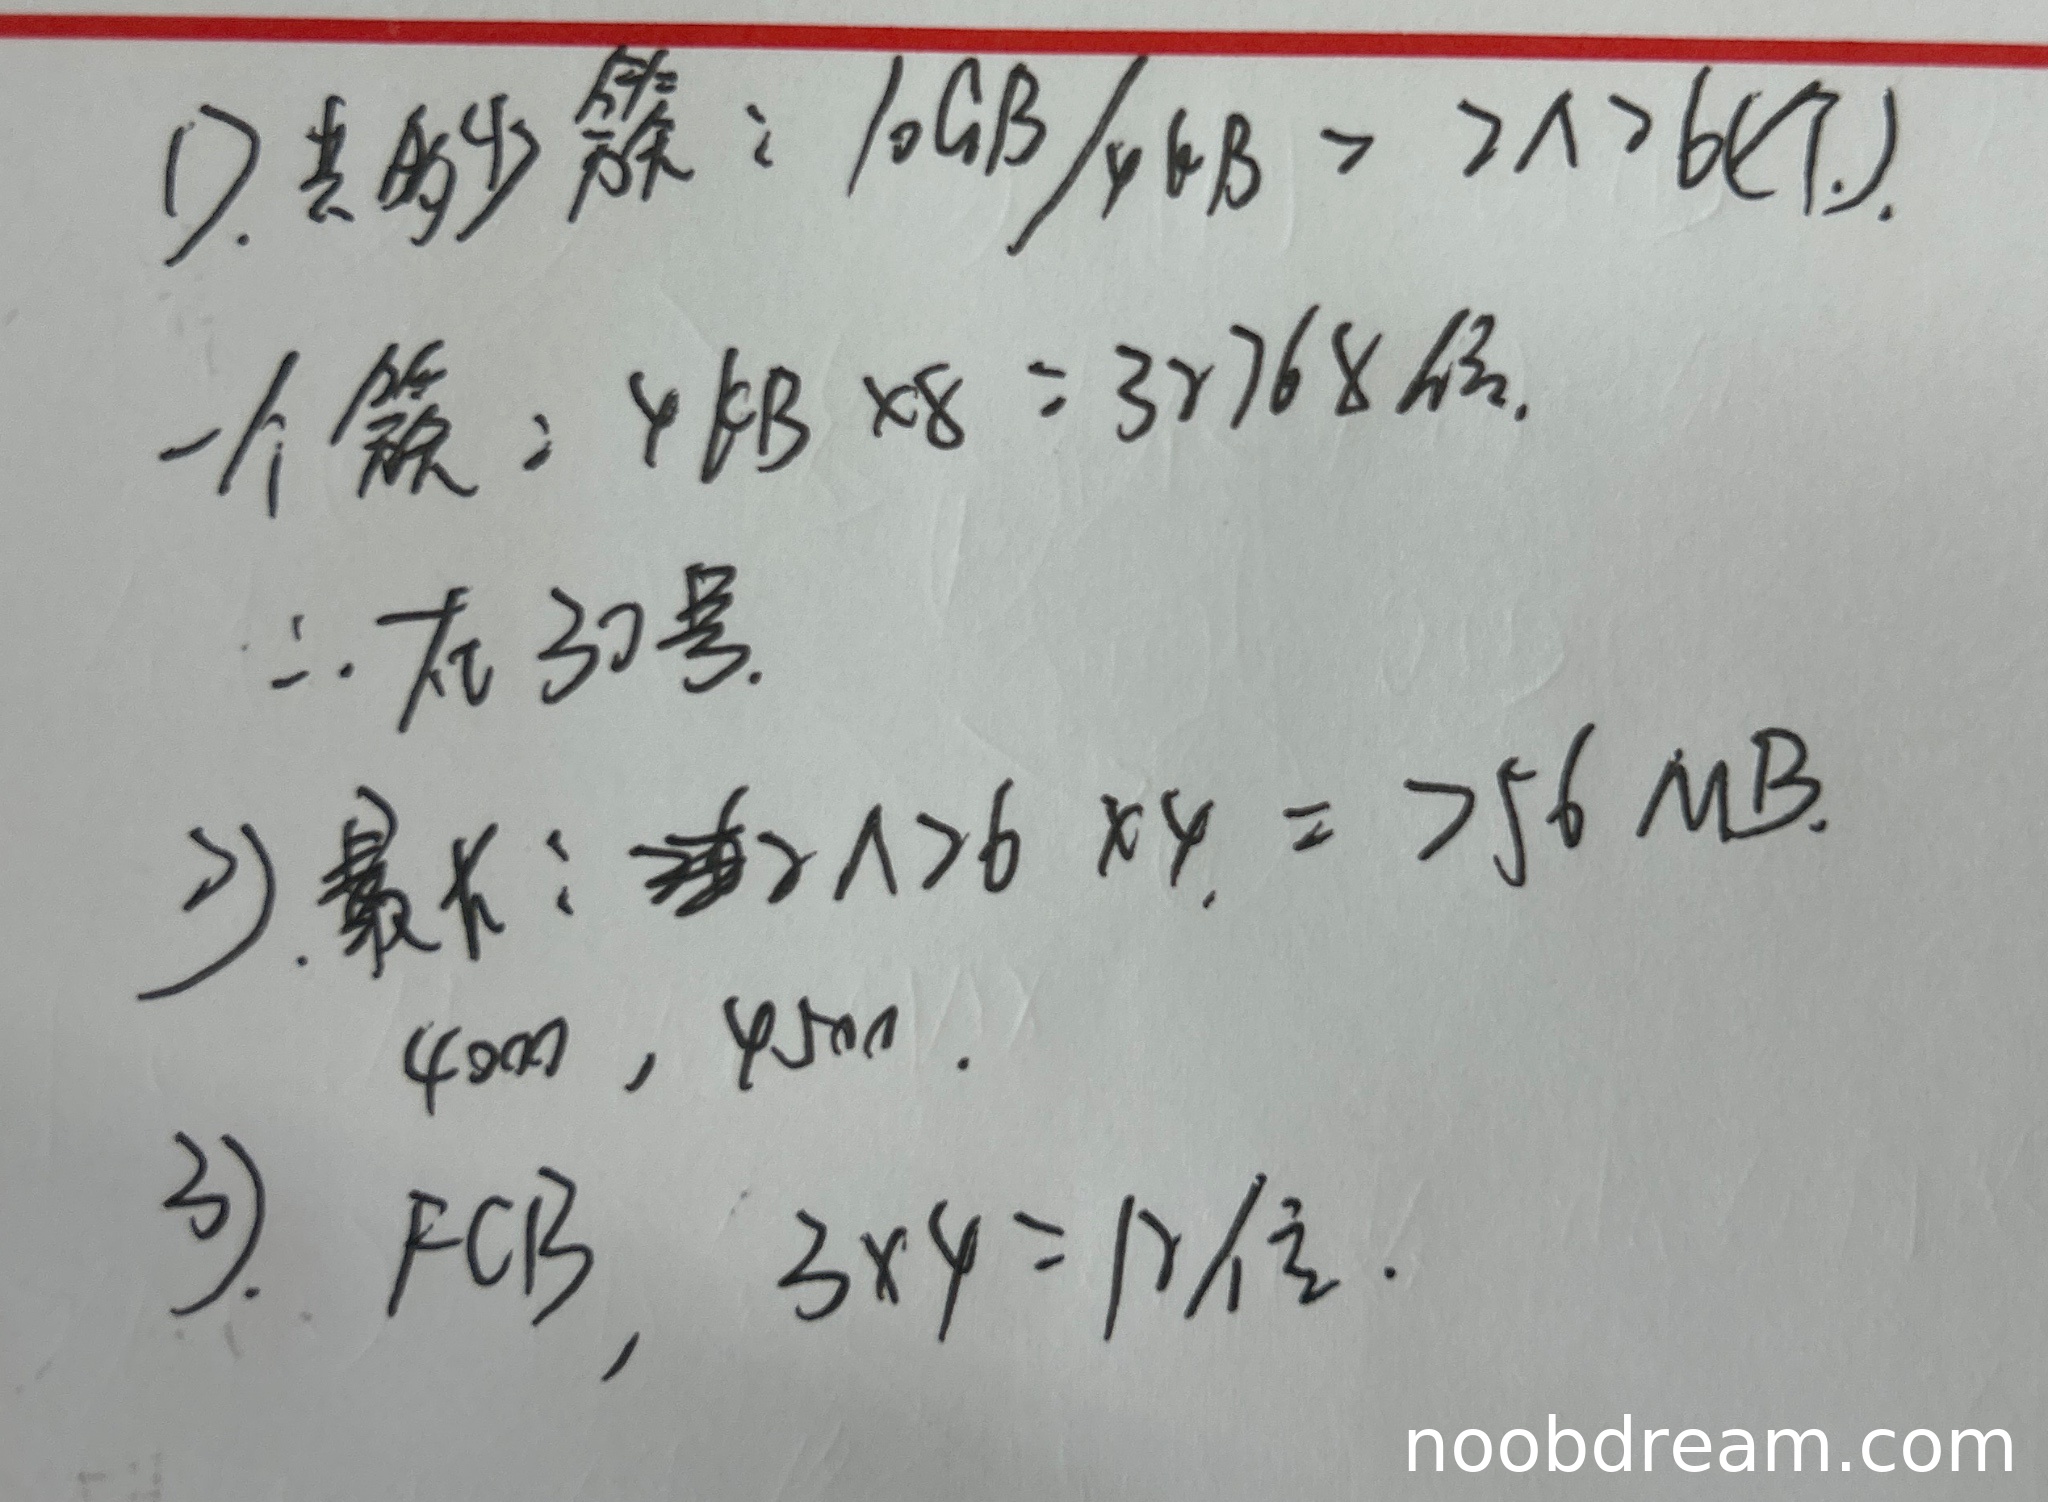 1). 共多少簇: 10GB/4KB = 2^26(个).
一个簇: 4KB ×8 = 32768位.
∴ 在30号.
2). 最大: 2^26 ×4. = 256 MB.
4000, 4500.
3). FCB, 3×4=12位.
noobdream.com